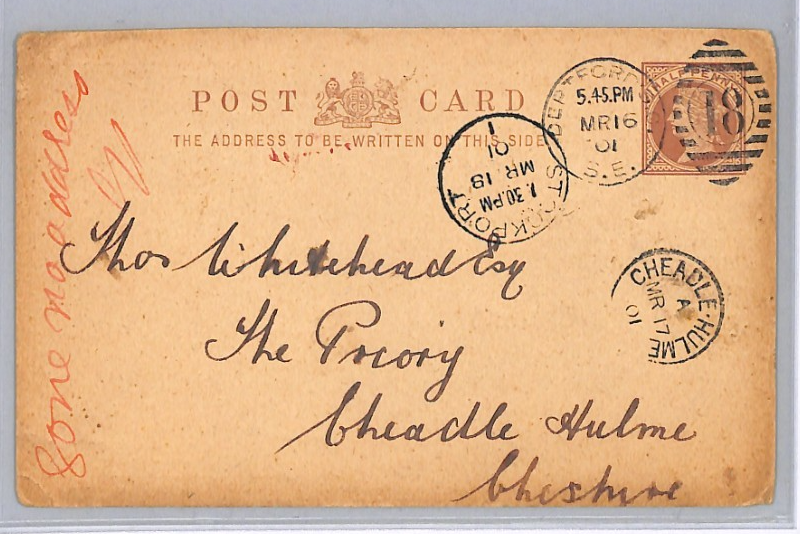 POST CARD
THE ADDRESS TO BE WRITTEN ON THIS SIDE
HALFPENNY
DEPTFORD
5.45.PM
MR16
01
S.E.
18
STOCKPORT
7.30.PM
MR 18
01
1
CHEADLE·HULME
A
MR 17
01
Thos Whitehead Esq
The Priory
Cheadle Hulme
Cheshire
Gone no address